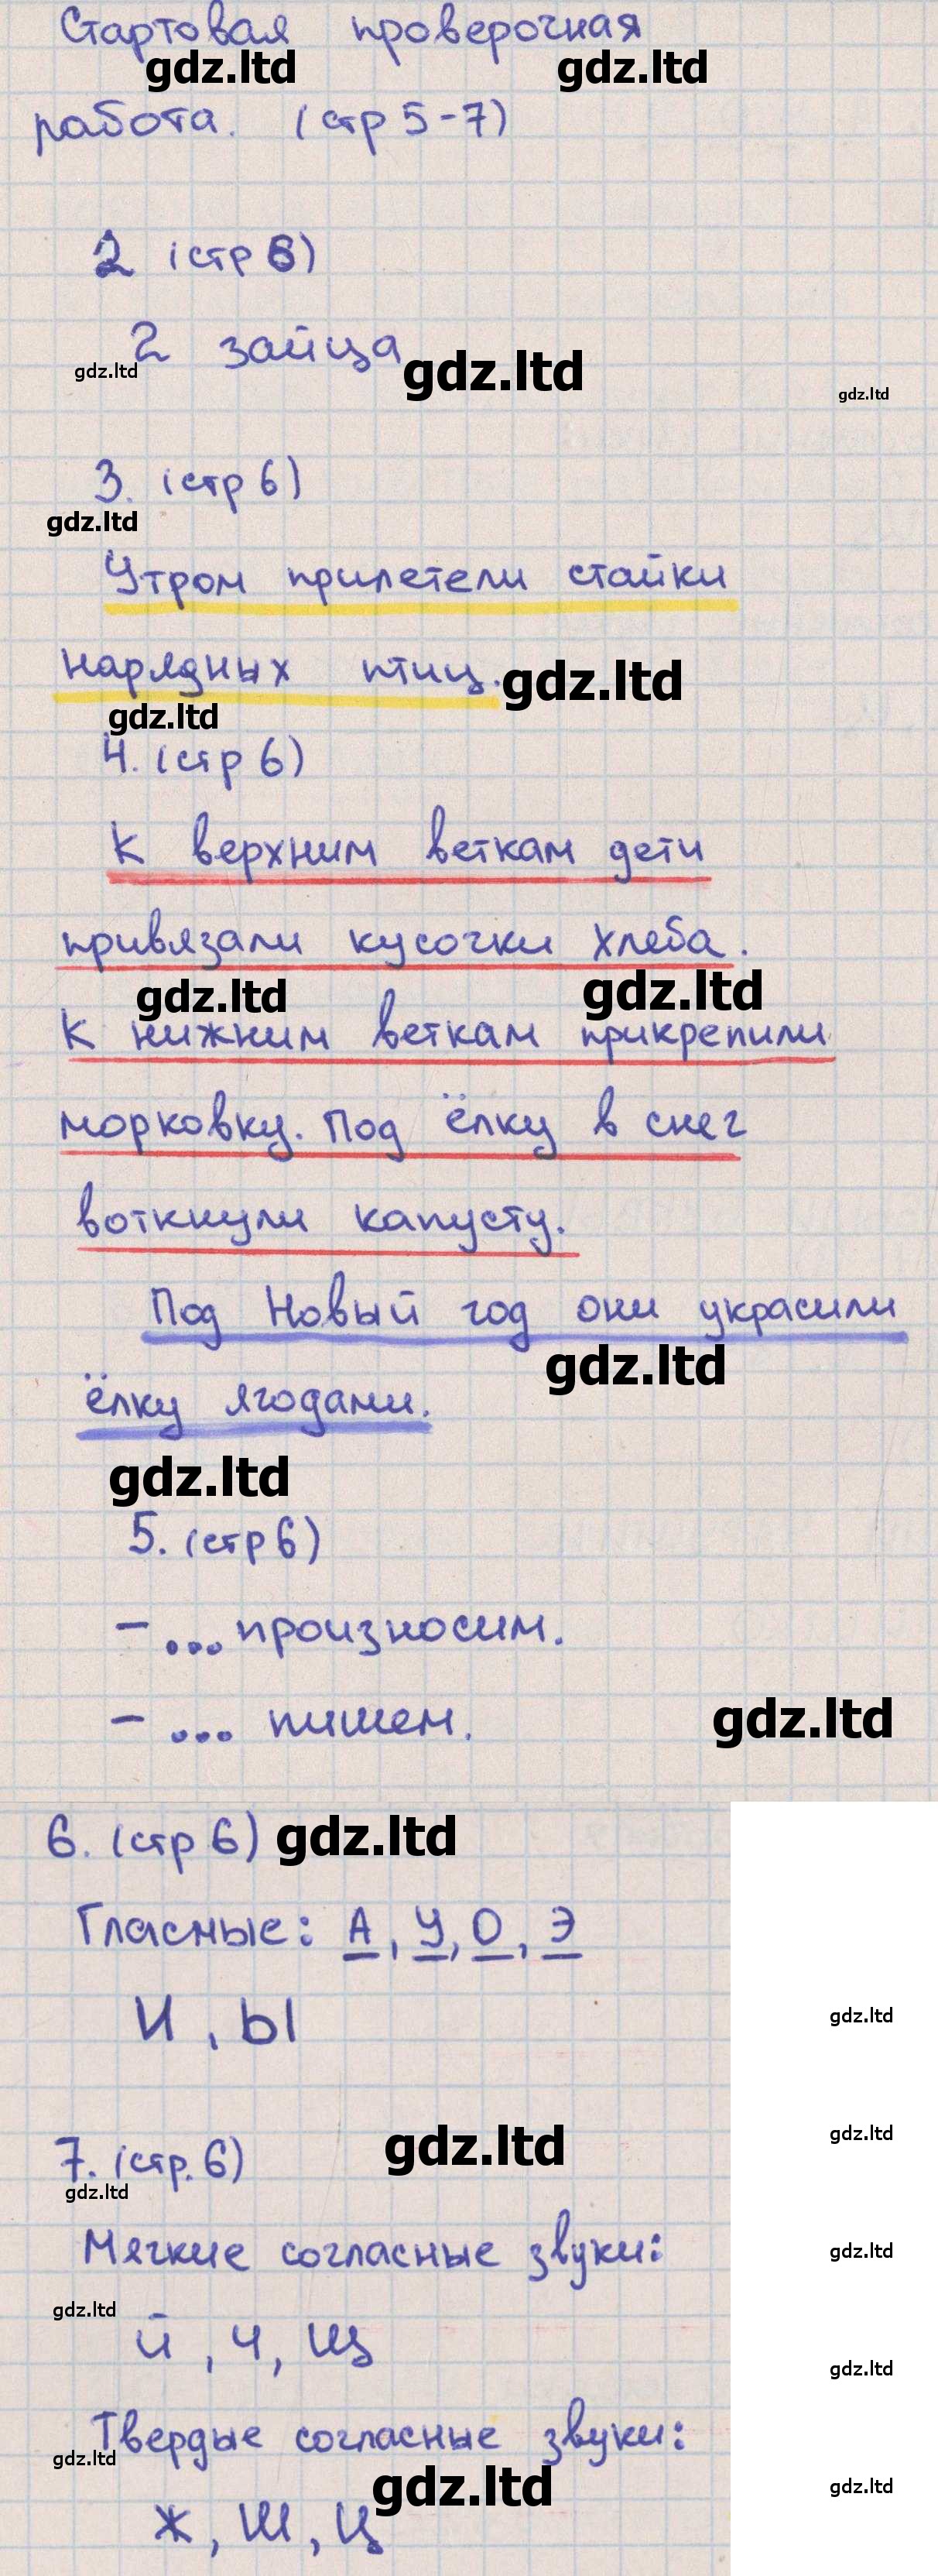 Стартовая проверочная
gdz.ltd gdz.ltd
работа. (стр 5-7)
2 (стр 6)
2 зайца
gdz.ltd gdz.ltd gdz.ltd
3. (стр 6)
gdz.ltd
Утром прилетели стайки
нарядных птиц. gdz.ltd
gdz.ltd
4. (стр 6)
К верхним веткам дети
привязали кусочки хлеба.
gdz.ltd gdz.ltd
К нижним веткам прикрепили
морковку. Под ёлку в снег
воткнули капусту.
Под Новый год они украсили
gdz.ltd
ёлку ягодами.
gdz.ltd
5. (стр 6)
- ... произносим.
- ... пишем. gdz.ltd
6. (стр 6) gdz.ltd
Гласные: А, У, О, Э
И, Ы
gdz.ltd
gdz.ltd
7. (стр. 6) gdz.ltd
gdz.ltd
Мягкие согласные звуки:
gdz.ltd
gdz.ltd
й, ч, щ
gdz.ltd
Твердые согласные звуки:
gdz.ltd
gdz.ltd gdz.ltd
Ж, Ш, Ц